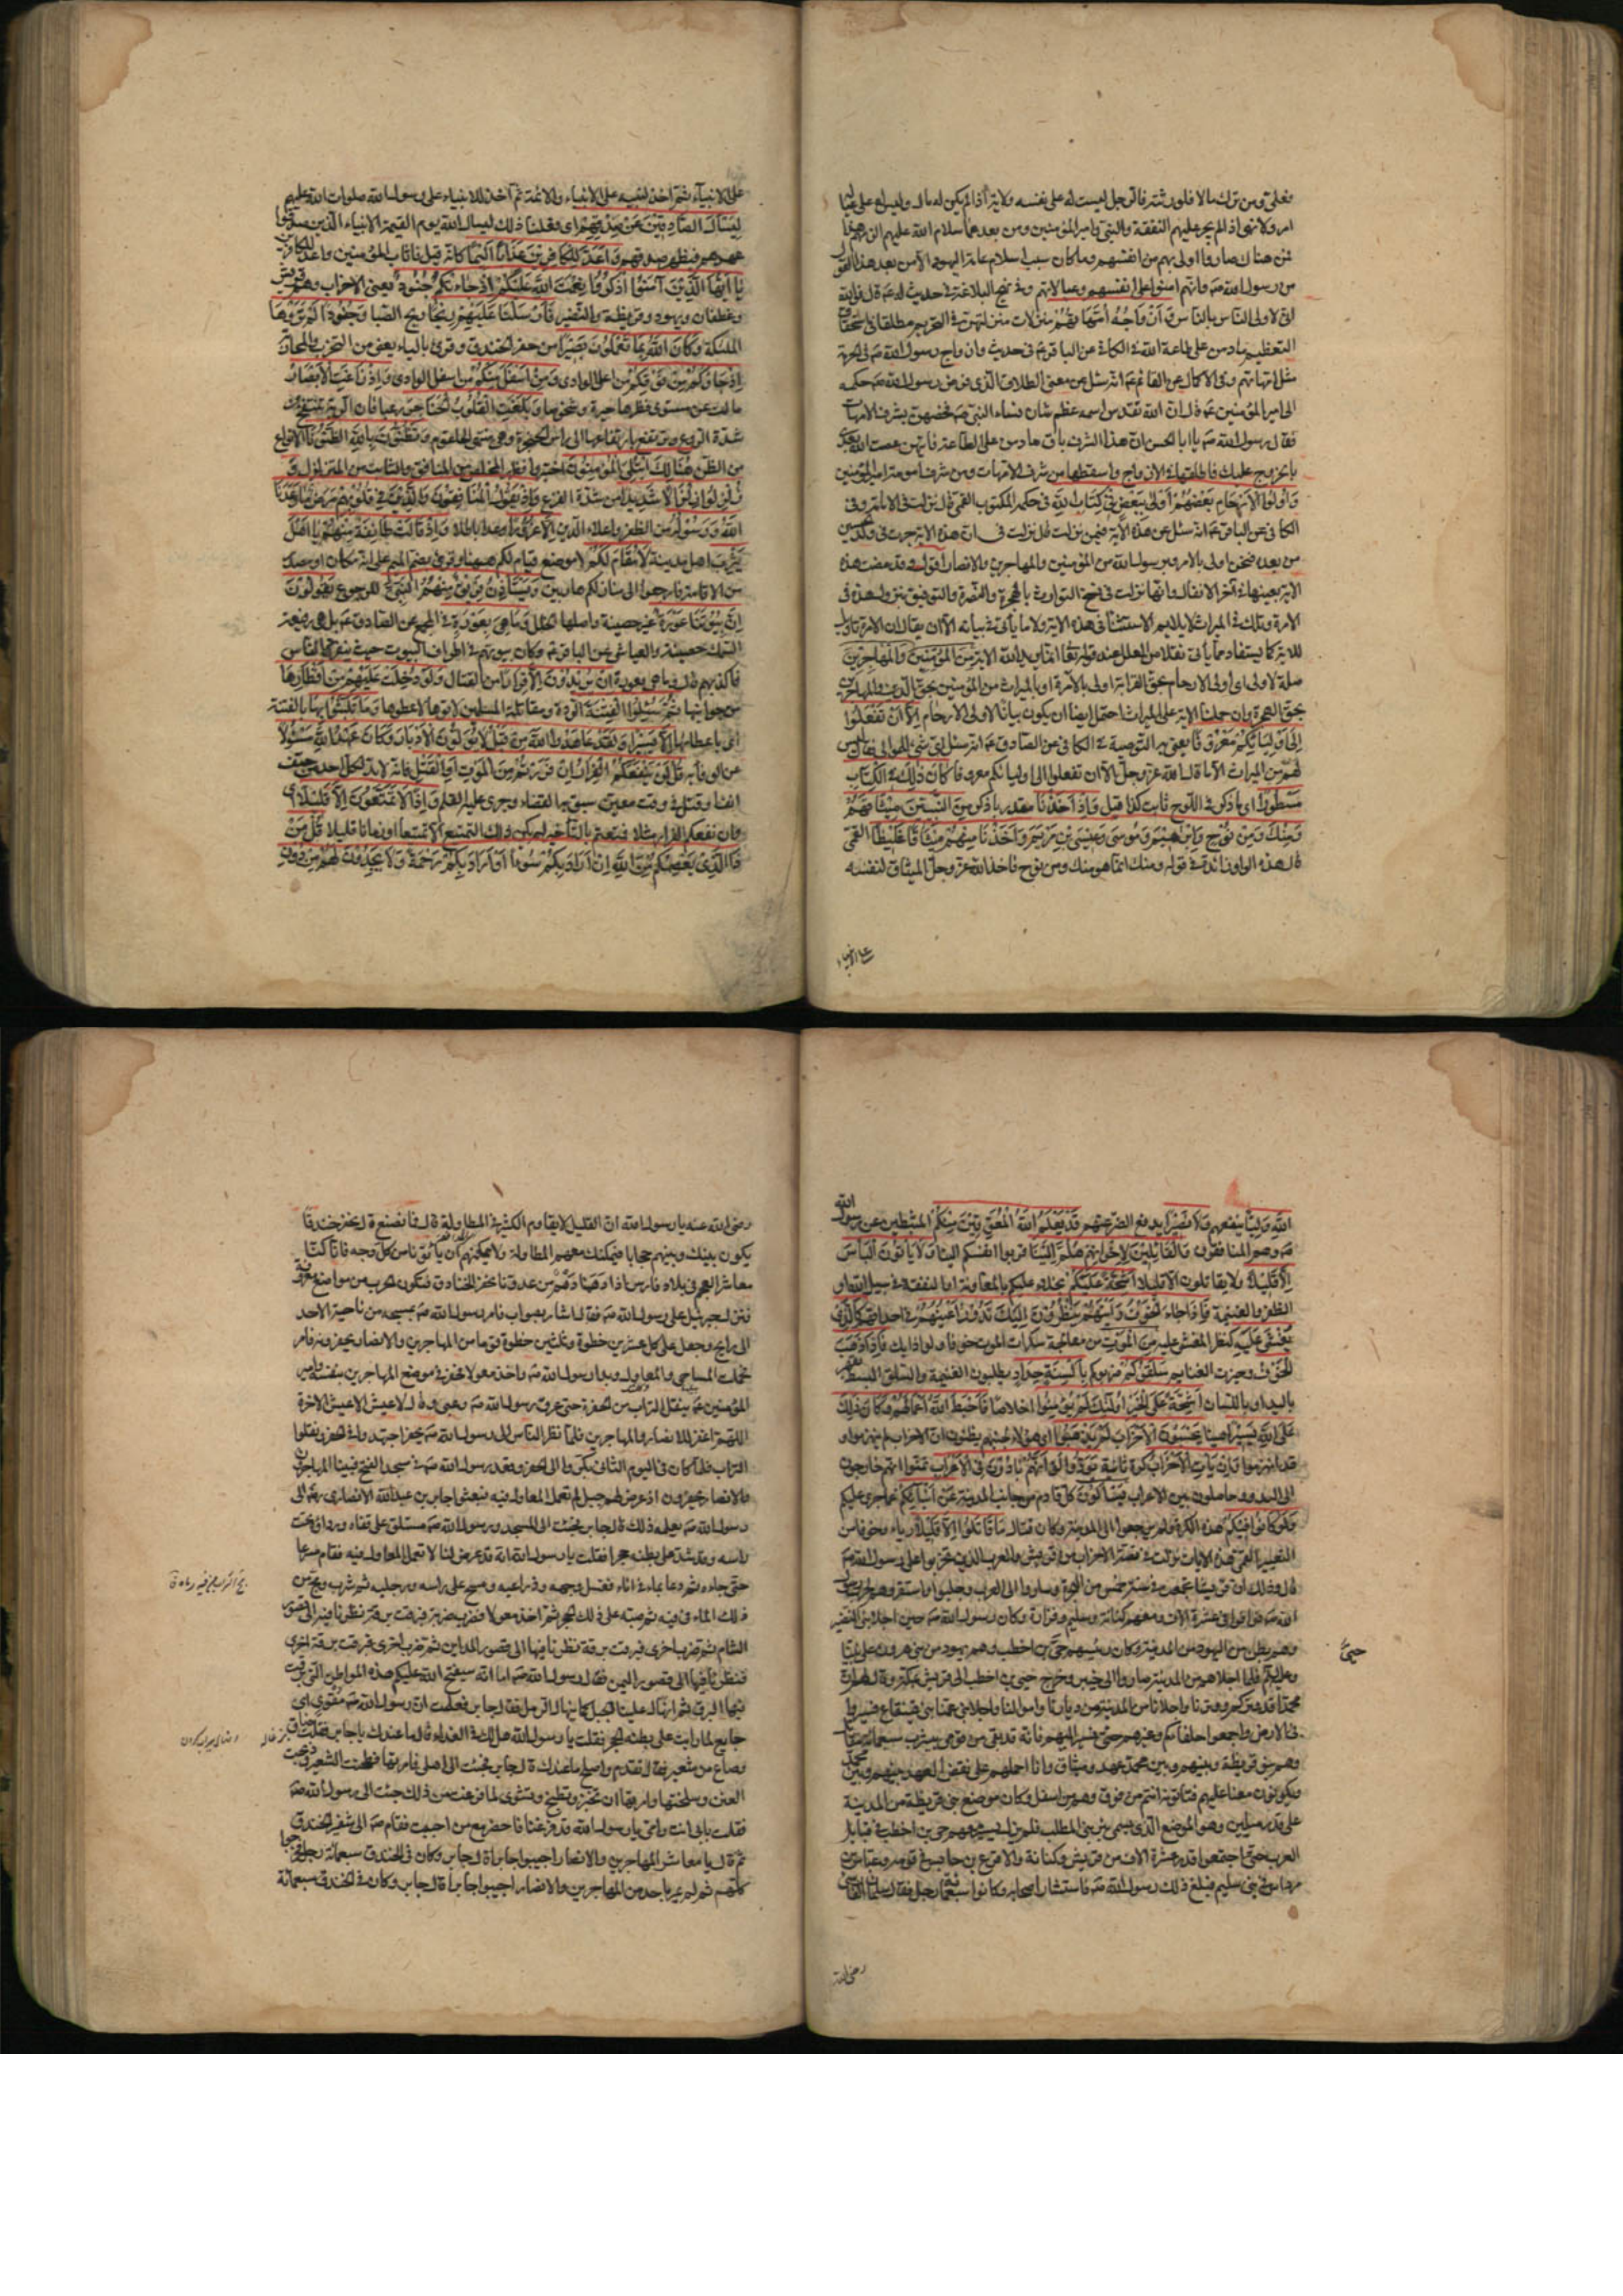 فعلي ومن ترك مالا فلورثته فالرجل ليست له على نفسه ولاية اذا لم يكن له مال وليس له على عياله
امر ولا نهي اذا لم يجر عليهم النفقة والنبي وامير المؤمنين ومن بعدهما سلام الله عليهم الزمهم هذا
فمن هناك صاروا اولى بهم من انفسهم وما كان سبب اسلام عامة اليهود الا من بعد هذا القول
من رسول الله صه وانهم امنوا على انفسهم وعيالاتهم وفي نهج البلاغة في حديث له عه قال فوالله
اني لاولى الناس بالناس وَأَزْوَاجُهُ أُمَّهَاتُهُمْ منزلات منزلتهن في التحريم مطلقا وفي استحقاق
التعظيم مادمن على طاعة الله في الكافي عن الباقر عه في حديث وازواج رسول الله صه في الحرمة
مثل امهاتهم وفي الاكمال عن القائم عه انه سئل عن معنى الطلاق الذي فوض رسول الله صه حكمه
الى امير المؤمنين عه قال ان الله تقدس اسمه عظم شان نساء النبي صه فخصهن بشرف الامهات
فقال رسول الله صه يا ابا الحسن ان هذا الشرف باق مادمن على الطاعة فايتهن عصت الله بعدي
بالخروج عليك فاطلقها في الازواج واسقطها من شرف الامهات ومن شرف امومة امير المؤمنين
وَأُولُوا الْأَرْحَامِ بَعْضُهُمْ أَوْلَى بِبَعْضٍ فِي كِتَابِ اللَّهِ في حكمه المكتوب القمي قال نزلت في الامامة وفي
الكافي عن الباقر عه انه سئل عن هذه الاية فيمن نزلت قال نزلت في ان هذه الاية جرت في ولد الحسين
من بعده فنحن اولى بالامر وبرسول الله من المؤمنين والمهاجرين والانصار اقول قد مضت هذه
الاية بعينها في آخر الانفال وانها نزلت في نسخ التوارث بالهجرة والنصرة والتوفيق بنزول هذه في
الامرة وتلك في الميراث لا يلايم الاستثنا في هذه الاية ولا ما يأتي في بيانه الا ان يقال ان الامرة تاويل
للاية كما يستفاد مما يأتي نقلا من العلل عند قوله تعالى انما يريد الله الاية مِنَ الْمُؤْمِنِينَ وَالْمُهَاجِرِينَ
صلة لاولى اي اولى الارحام بحق القرابة اولى بالامرة او بالميراث من المؤمنين بحق الدين والمهاجرين
بحق الهجرة وان حملنا الاية على الميراث احتمل ايضا ان يكون بيانا لاولي الارحام إِلَّا أَنْ تَفْعَلُوا
إِلَى أَوْلِيَائِكُمْ مَعْرُوفًا يعني به التوصية في الكافي عن الصادق عه انه سئل اي شئ للموالي فقال ليس
لهم من الميراث الا ما قال الله عز وجل الا ان تفعلوا الى اوليائكم معروفا كَانَ ذَلِكَ فِي الْكِتَابِ
مَسْطُورًا اي ما ذكر في اللوح ثابت كذا قيل وَإِذْ أَخَذْنَا مقدر باذكر مِنَ النَّبِيِّينَ مِيثَاقَهُمْ
وَمِنْكَ وَمِنْ نُوحٍ وَإِبْرَاهِيمَ وَمُوسَى وَعِيسَى بْنِ مَرْيَمَ وَأَخَذْنَا مِنْهُمْ مِيثَاقًا غَلِيظًا القمي
قال هذه الواو زائدة في قوله ومنك انما هو منك ومن نوح فاخذ الله عز وجل الميثاق لنفسه
على الانبياء
على الانبياء ثم اخذ لنبيه على الانبياء والائمة ثم اخذ للانبياء على رسول الله صلوات الله عليهم
لِيَسْأَلَ الصَّادِقِينَ عَنْ صِدْقِهِمْ اي فعلنا ذلك ليسأل الله يوم القيمة الانبياء الذين صدقوا
عهدهم فيظهر صدقهم وَأَعَدَّ لِلْكَافِرِينَ عَذَابًا أَلِيمًا كانه قيل فاثاب المؤمنين واعد للكافرين
يَا أَيُّهَا الَّذِينَ آمَنُوا اذْكُرُوا نِعْمَتَ اللَّهِ عَلَيْكُمْ إِذْ جَاءَتْكُمْ جُنُودٌ يعني الاحزاب وهم قريش
وغطفان ويهود وقريظة والنضير فَأَرْسَلْنَا عَلَيْهِمْ رِيحًا ريح الصبا وَجُنُودًا لَمْ تَرَوْهَا
الملئكة وَكَانَ اللَّهُ بِمَا تَعْمَلُونَ بَصِيرًا من حفر الخندق وقرئ بالياء يعني من التحزب والمحاربة
إِذْ جَاؤُكُمْ مِنْ فَوْقِكُمْ من اعلى الوادي وَمِنْ أَسْفَلَ مِنْكُمْ من اسفل الوادي وَإِذْ زَاغَتِ الْأَبْصَارُ
مالت عن مستوى نظرها حيرة وشخوصا وَبَلَغَتِ الْقُلُوبُ الْحَنَاجِرَ رعبا فان الرية تنتفخ من
شدة الروع وترتفع بارتفاعها الى راس الحنجرة وهي منتهى الحلقوم وَتَظُنُّونَ بِاللَّهِ الظُّنُونَا الانواع
من الظن هُنَالِكَ ابْتُلِيَ الْمُؤْمِنُونَ اختبروا فظهر المخلص من المنافق والثابت من المتزلزل وَ
زُلْزِلُوا زِلْزَالًا شَدِيدًا من شدة الفزع وَإِذْ يَقُولُ الْمُنَافِقُونَ وَالَّذِينَ فِي قُلُوبِهِمْ مَرَضٌ مَا وَعَدَنَا
اللَّهُ وَرَسُولُهُ من الظفر واعلاء الدين إِلَّا غُرُورًا وعدا باطلا وَإِذْ قَالَتْ طَائِفَةٌ مِنْهُمْ يَا أَهْلَ
يَثْرِبَ اهل مدينة لَا مُقَامَ لَكُمْ لا موضع قيام لكم ههنا وقرئ بضم الميم على انه مكان او مصدر
من الاقامة فَارْجِعُوا الى منازلكم هاربين وَيَسْتَأْذِنُ فَرِيقٌ مِنْهُمُ النَّبِيَّ للرجوع يَقُولُونَ
إِنَّ بُيُوتَنَا عَوْرَةٌ غير حصينة واصلها الخلل وَمَا هِيَ بِعَوْرَةٍ في المجمع عن الصادق عه بل هي رفيعة
السمك حصينة والعياشي عن الباقر عه وكان بيوتهم في اطراف البيوت حيث ينفرد الناس
فاكذبهم قال وما هي بعورة إِنْ يُرِيدُونَ إِلَّا فِرَارًا من القتال وَلَوْ دُخِلَتْ عَلَيْهِمْ مِنْ أَقْطَارِهَا
من جوانبها ثُمَّ سُئِلُوا الْفِتْنَةَ الردة ومقاتلة المسلمين لَآتَوْهَا لاعطوها وَمَا تَلَبَّثُوا بِهَا بالفتنة
اي باعطائها إِلَّا يَسِيرًا وَلَقَدْ كَانُوا عَاهَدُوا اللَّهَ مِنْ قَبْلُ لَا يُوَلُّونَ الْأَدْبَارَ وَكَانَ عَهْدُ اللَّهِ مَسْئُولًا
عن الوفاء به قُلْ لَنْ يَنْفَعَكُمُ الْفِرَارُ إِنْ فَرَرْتُمْ مِنَ الْمَوْتِ أَوِ الْقَتْلِ فانه لابد لكل احد من حتف
انف او قتل في وقت معين سبق به القضاء وجرى عليه القلم وَإِذًا لَا تُمَتَّعُونَ إِلَّا قَلِيلًا اي
وان نفعكم الفرار مثلا فمتعتم بالتأخير لم يكن ذلك التمتيع الا تمتيعا او زمانا قليلا قُلْ مَنْ
ذَا الَّذِي يَعْصِمُكُمْ مِنَ اللَّهِ إِنْ أَرَادَ بِكُمْ سُوءًا أَوْ أَرَادَ بِكُمْ رَحْمَةً وَلَا يَجِدُونَ لَهُمْ مِنْ دُونِ
اللَّهِ وَلِيًّا ينفعهم وَلَا نَصِيرًا يدفع الضر عنهم قَدْ يَعْلَمُ اللَّهُ الْمُعَوِّقِينَ مِنْكُمْ المثبطين عن رسول الله
صه وهم المنافقون وَالْقَائِلِينَ لِإِخْوَانِهِمْ هَلُمَّ إِلَيْنَا قربوا انفسكم الينا وَلَا يَأْتُونَ الْبَأْسَ
إِلَّا قَلِيلًا ولا يقاتلون الا قليلا أَشِحَّةً عَلَيْكُمْ بخلاء عليكم بالمعاونة او النفقة في سبيل الله او
الظفر والغنيمة فَإِذَا جَاءَ الْخَوْفُ رَأَيْتَهُمْ يَنْظُرُونَ إِلَيْكَ تَدُورُ أَعْيُنُهُمْ في احداقهم كَالَّذِي
يُغْشَى عَلَيْهِ كنظر المغشي عليه مِنَ الْمَوْتِ من معالجة سكرات الموت خوفا ولواذا بك فَإِذَا ذَهَبَ
الْخَوْفُ وحيزت الغنايم سَلَقُوكُمْ ضربوكم بِأَلْسِنَةٍ حِدَادٍ يطلبون الغنيمة والسلق البسط بقهر
باليد او باللسان أَشِحَّةً عَلَى الْخَيْرِ أُولَئِكَ لَمْ يُؤْمِنُوا اخلاصا فَأَحْبَطَ اللَّهُ أَعْمَالَهُمْ وَكَانَ ذَلِكَ
عَلَى اللَّهِ يَسِيرًا هينا يَحْسَبُونَ الْأَحْزَابَ لَمْ يَذْهَبُوا اي هؤلاء لجبنهم يظنون ان الاحزاب لم ينهزموا و
قد انهزموا وَإِنْ يَأْتِ الْأَحْزَابُ كرة ثانية يَوَدُّوا لَوْ أَنَّهُمْ بَادُونَ فِي الْأَعْرَابِ تمنوا انهم خارجون
الى البدو وحاصلون بين الاعراب يَسْأَلُونَ كل قادم من جانب المدينة عَنْ أَنْبَائِكُمْ عما جرى عليكم
وَلَوْ كَانُوا فِيكُمْ هذه الكرة ولم يرجعوا الى المدينة وكان قتال مَا قَاتَلُوا إِلَّا قَلِيلًا رياء وخوفا من
التعيير القمي هذه الايات نزلت في قصة الاحزاب من قريش والعرب الذين تحزبوا على رسول الله صه
قال وذلك ان قريشا تجمعت في سنة خمس من الهجرة وساروا الى العرب وجلبوا واستفزوهم لحرب رسول
الله صه فوافوا في عشرة الاف ومعهم كنانة وسليم وفزارة وكان رسول الله صه حين اجلا بني النضير
وهم بطن من اليهود من المدينة وكان رئيسهم حي بن اخطب وهم يهود من بني هرون على نبينا
حيي
وعليه السلم فلما اجلاهم من المدينة صاروا الى خيبر وخرج حيي بن اخطب الى قريش بمكة وقال لهم ان
محمدا قد وتركم ووترنا واجلانا من المدينة من ديارنا واموالنا واجلا بني عمنا بني قينقاع فسيروا
في الارض واجمعوا حلفاءكم وغيرهم حتى نسير اليهم فانه قد بقي من قومي بيثرب سبعمائة مقاتل
وهم بنو قريظة وبينهم وبين محمد عهد وميثاق وانا احملهم على نقض العهد بينهم وبين محمد
ويكونون معنا عليهم فتأتونه انتم من فوق وهم من اسفل وكان موضع بني قريظة من المدينة
على قدر ميلين وهو الموضع الذي يسمى بئر بني المطلب فلم يزل يسير معهم حي بن اخطب في قبايل
العرب حتى اجتمعوا قدر عشرة الاف من قريش وكنانة والاقرع بن حابس في قومه وعباس بن
مرداس في بني سليم فبلغ ذلك رسول الله صه فاستشار اصحابه وكانوا سبعمائة رجل فقال سلمان الفارسي
رضي الله
رضي الله عنه يا رسول الله ان القليل لا يقاوم الكثير في المطاولة قال فما نصنع قال نحفر خندقا
يكون بينك وبينهم حجابا فيمكنك منعهم المطاولة ولا يمكنهم ان يأتوناس كل وجه فانا كنا
معاشر العجم في بلاد فارس اذا دهمنا دهم من عدونا نحفر الخنادق فتكون الحرب من مواضع معروفة
فنزل جبرئيل على رسول الله صه فقال اشار بصواب فامر رسول الله صه بمسيحه من ناحية الاحد
الى راتج وجعل على كل عشرين خطوة وثلثين خطوة قوما من المهاجرين والانصار يحفرونه فامر
فحملت المساحي والمعاول وبدا رسول الله صه واخذ معولا فحفر في موضع المهاجرين بنفسه وامير
المؤمنين عه ينقل التراب من الحفرة حتى عرق رسول الله صه وعيى وقال لا عيش الا عيش الاخرة
اللهم اغفر للانصار والمهاجرين فلما نظر الناس الى رسول الله صه يحفر اجتهدوا في الحفر ونقلوا
التراب فلما كان في اليوم الثاني بكروا الى الحفر وقعد رسول الله صه في مسجد الفتح فبينا المهاجرون
والانصار يحفرون اذ عرض لهم جبل لم تعمل المعاول فيه فبعثوا جابر بن عبد الله الانصاري رضه الى
رسول الله صه يعلمه ذلك قال جابر فجئت الى المسجد ورسول الله صه مستلق على قفاه ورداؤه تحت
راسه وقد شد على بطنه حجرا فقلت يا رسول الله انه قد عرض لنا لا تعمل المعاول فيه فقام مسرعا
حتى جاءه ثم دعا بماء في اناء فغسل وجهه وذراعيه ومسح على راسه ورجليه ثم شرب ومج من
ذلك الماء في فيه ثم صبه على ذلك الحجر ثم اخذ معولا فضرب ضربة فبرقت برقة نظرنا فيه الى قصور
الشام ثم ضرب اخرى فبرقت برقة نظرنا فيها الى قصور المداين ثم ضرب اخرى فبرقت برقة اخرى
فنظرنا فيها الى قصور اليمن فقال رسول الله صه اما انه سيفتح الله عليكم هذه المواطن التي برقت
فيها البرق ثم انهال علينا الجبل كما ينهال الرمل فقال جابر فعلمت ان رسول الله صه مقوي اي
جايع لما رايت على بطنه الحجر فقلت يا رسول الله هل لك في الغداء قال ما عندك يا جابر فقلت عناق
وصاع من شعير فقال تقدم واصلح ما عندك قال جابر فجئت الى اهلي فامرتها فطحنت الشعير وذبحت
العنز وسلختها وامرتها ان تخبز وتطبخ وتشوي فلما فرغت من ذلك جئت الى رسول الله صه
فقلت بابي انت وامي يا رسول الله قد فرغنا فاحضر مع من احببت فقام صه الى شفير الخندق
ثم قال يا معاشر المهاجرين والانصار اجيبوا جابرا قال جابر وكان في الخندق سبعمائة رجل فخرجوا
كلهم ثم لم يمر باحد من المهاجرين والانصار الا قال اجيبوا جابرا قال جابر وكان في الخندق سبعمائة